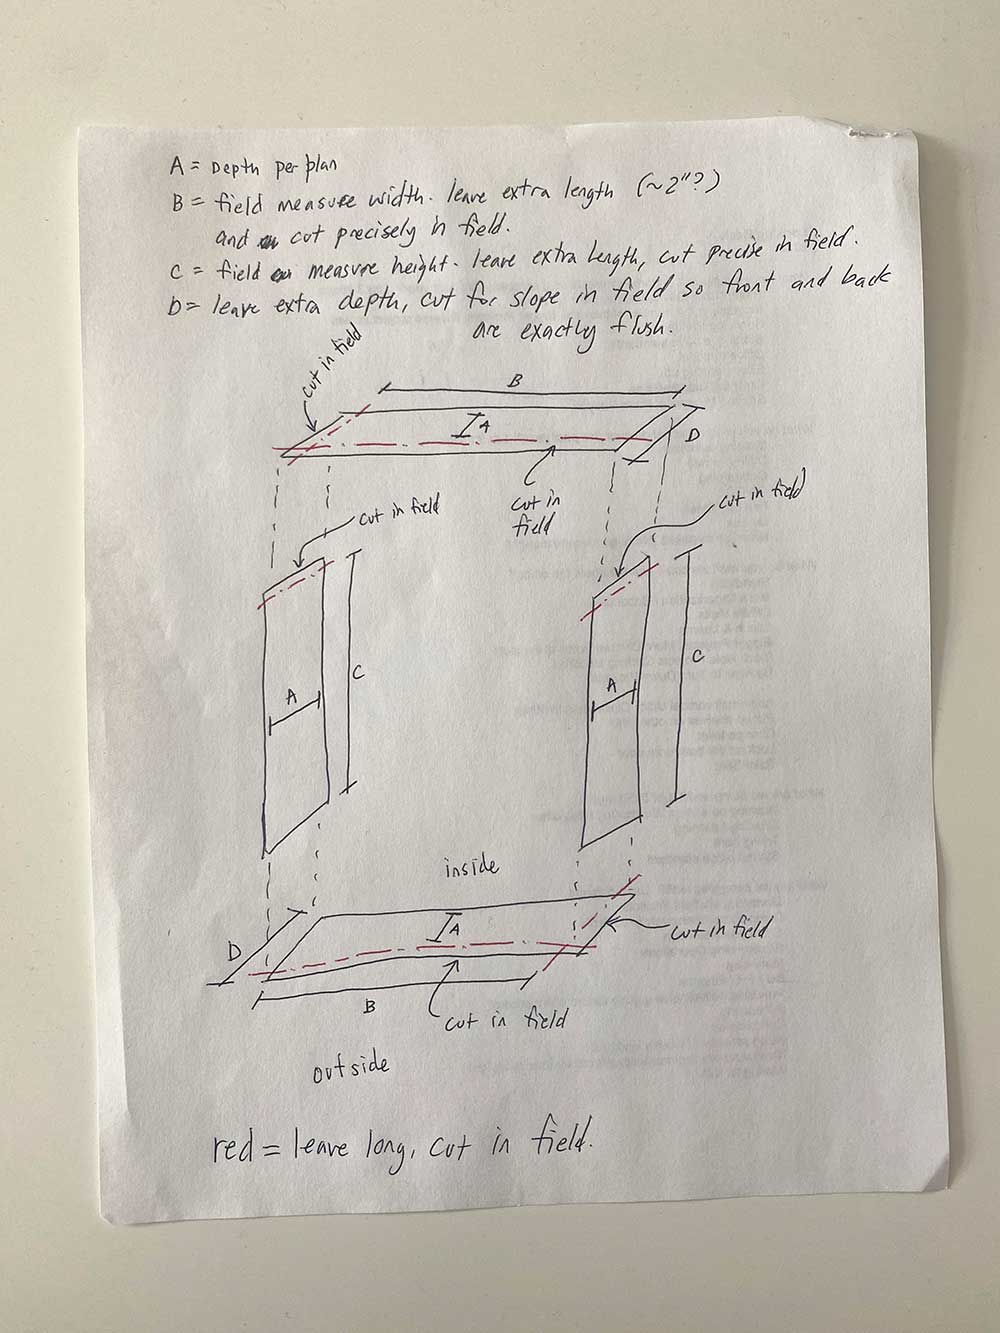 A = Depth per plan
B = field measure width. leave extra length (~2"?)
and cut precisely in field.
C = field measure height. leave extra length, cut precise in field.
D = leave extra depth, cut for slope in field so front and back
are exactly flush.
cut in field
B
A
D
cut in
field
cut in field
cut in field
C
A
C
A
inside
D
A
cut in field
B
cut in field
outside
red = leave long, cut in field.